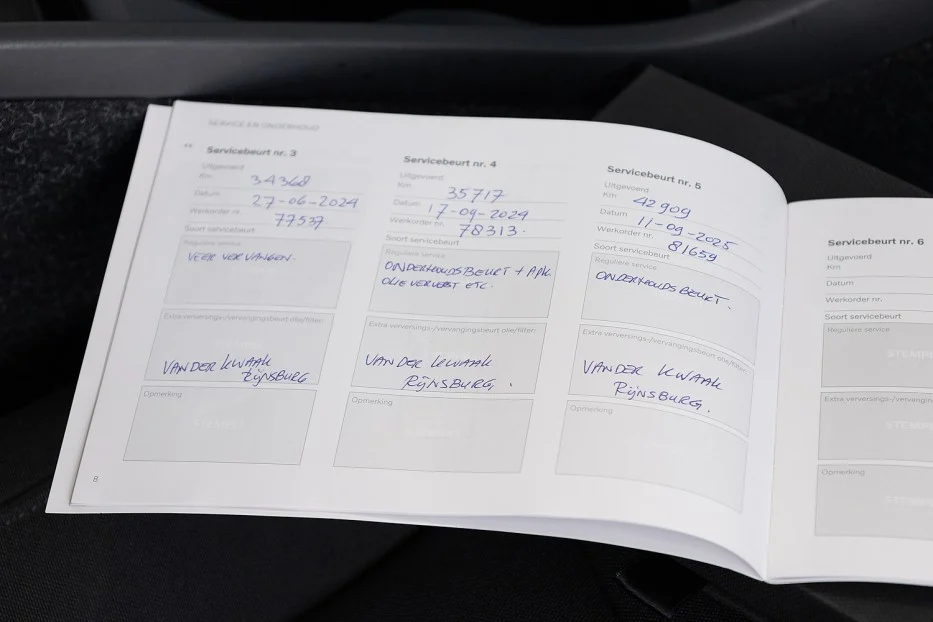 SERVICE EN ONDERHOUD
Servicebeurt nr. 3
Uitgevoerd
Km 34368
Datum 27-06-2024
Werkorder nr. 77537
Soort servicebeurt
Reguliere service
VEER VERVANGEN.
Extra verversings-/vervangingsbeurt olie/filter:
VAN DER KWAAK
RIJNSBURG
Opmerking
STEMPEL
8
Servicebeurt nr. 4
Uitgevoerd
Km 35717
Datum 17-09-2024
Werkorder nr. 78313.
Soort servicebeurt
Reguliere service
ONDERHOUDSBEURT + APK
OLIE VERVERST ETC.
Extra verversings-/vervangingsbeurt olie/filter:
VAN DER KWAAK
RIJNSBURG.
Opmerking
Servicebeurt nr. 5
Uitgevoerd
Km 42909
Datum 11-09-2025
Werkorder nr. 81659
Soort servicebeurt
Reguliere service
ONDERHOUDSBEURT.
Extra verversings-/vervangingsbeurt olie/filter:
VAN DER KWAAK
RIJNSBURG.
Opmerking
Servicebeurt nr. 6
Uitgevoerd
Km
Datum
Werkorder nr.
Soort servicebeurt
Reguliere service
STEMPE
Extra verversings-/vervanging
STEMPE
Opmerking
STEMPE